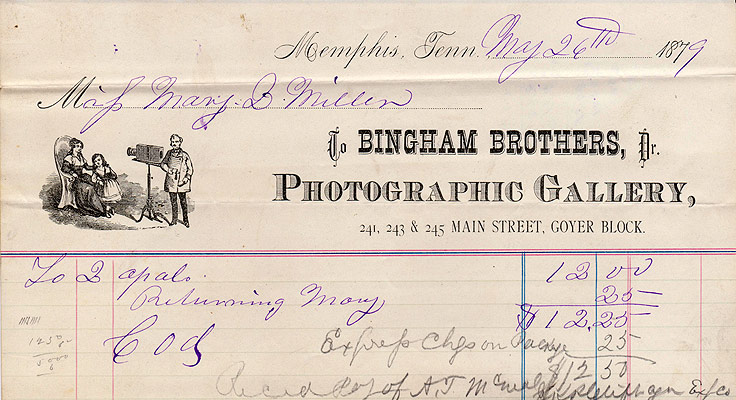 Memphis, Tenn. May 26th 1879
Miss Mary B Millen
To BINGHAM BROTHERS, Dr.
PHOTOGRAPHIC GALLERY,
241, 243 & 245 MAIN STREET, GOYER BLOCK.
To 2 opals. 12 00
Returning Mony 25
C O d $12.25
Express Chgs on Package 25
$12 50
Recd Pay of A.T.